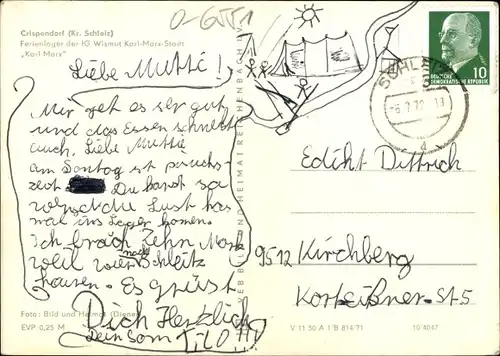 0-6551
Crispendorf (Kr. Schleiz)
Ferienlager der IG Wismut Karl-Marx-Stadt
"Karl Marx"
Liebe Mutti!
Mir get es ser gut
und das Essen schmekt
auch. Liebe Mutti
am Sontag ist psuchs-
zeit Du hast sa
Lust has
mal ins Lager komen.
Ich brauch Zehn Mark
weil wier nach Schleitz
faren. Es grüst
Dich Herzlich
dein Son TILO
Foto: Bild und Heimat (Diener)
EVP 0,25 M
VEB BILD UND HEIMAT REICHENBACH
SCHLEIZ
72
a
10
DEUTSCHE
DEMOKRATISCHE REPUBLIK
Edicht Dittrich
9512 Kirchberg
Str 5
V 11 50 A 1/B 814/71
10/4047